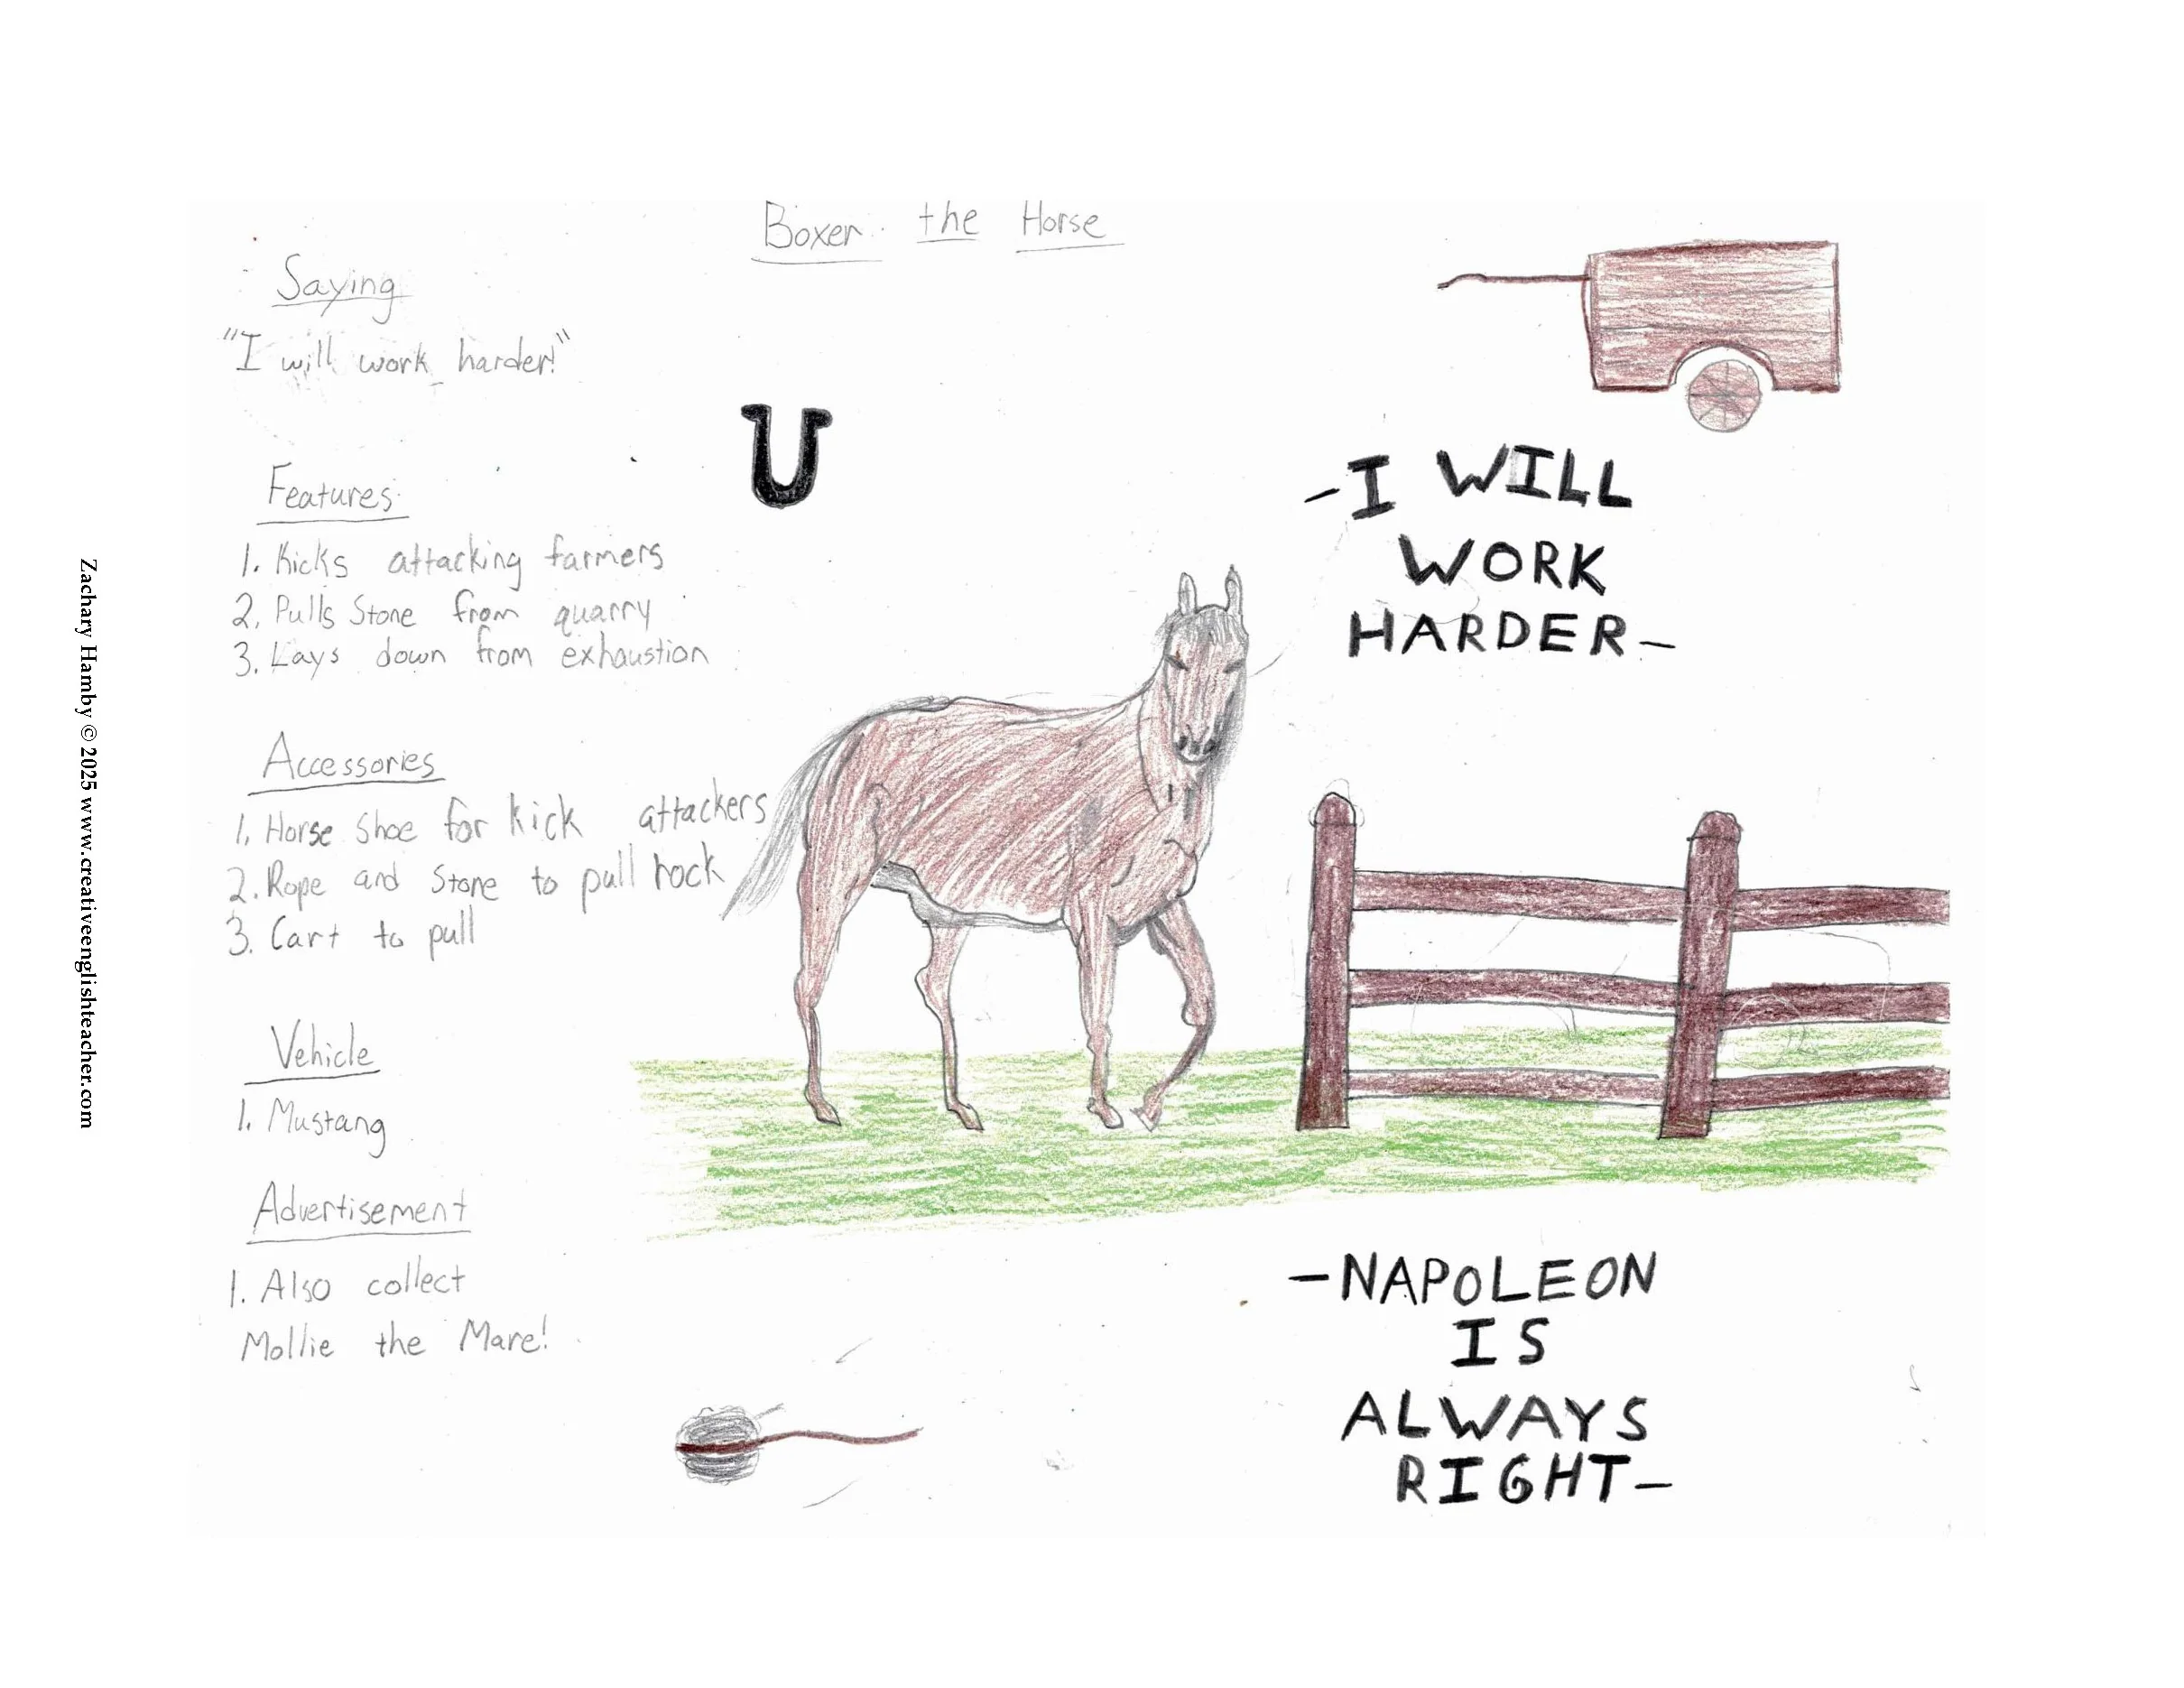 Boxer the Horse
Saying
"I will work harder!"
Features
1. Kicks attacking farmers
2. Pulls Stone from quarry
3. Lays down from exhaustion
Accessories
1. Horse Shoe for kick attackers
2. Rope and Stone to pull rock
3. Cart to pull
Vehicle
1. Mustang
Advertisement
1. Also collect
Mollie the Mare!
-I WILL
WORK
HARDER-
-NAPOLEON
IS
ALWAYS
RIGHT-
Zachary Hamby © 2025 www.creativeenglishteacher.com